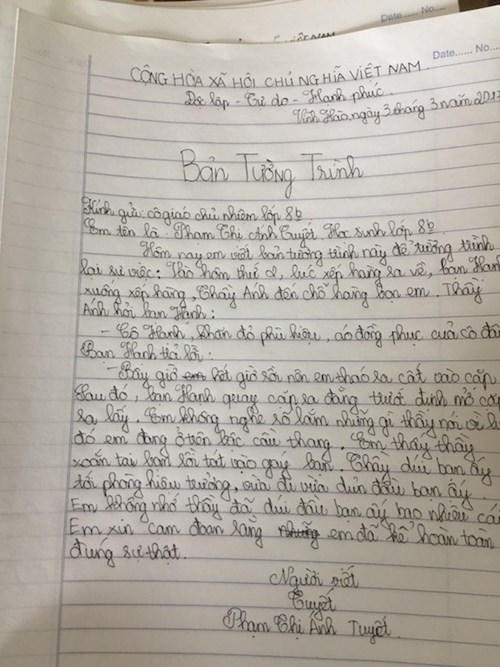 Date...... No...
VIỆT NAM
Date...... No..
CỘNG HÒA XÃ HỘI CHỦ NGHĨA VIỆT NAM.
Độc lập - Tự do - Hạnh phúc.
Vĩnh Hào, ngày 3 tháng 3 năm 201
BẢN TƯỜNG TRÌNH
Kính gửi: cô giáo chủ nhiệm lớp 8b
Em tên là: Phạm Thị Ánh Tuyết. Học sinh lớp 8b.
Hôm nay em viết bản tường trình này để tường trình
lại sự việc: Vào hôm thứ 2, lúc xếp hàng ra về, bạn Hạnh
xuống xếp hàng, Thầy Ánh đến chỗ hàng bọn em. Thầy
Ánh hỏi bạn Hạnh:
- Cô Hạnh, khăn đỏ phù hiệu, áo đồng phục của cô đâ
Bạn Hạnh trả lời:
- Bây giờ em hết giờ rồi nên em tháo ra cất vào cặp.
Sau đó, bạn Hạnh quay cặp ra đằng trước định mở cặ
ra lấy. Em không nghe rõ lắm những gì thầy nói vì l
đó em đang ở trên bậc cầu thang. Em thấy thầy
xoắn tai bạn rồi tát vào gáy bạn. Thầy dúi bạn ấy
tới phòng hiệu trưởng, vừa đi vừa dúi đầu bạn ấy.
Em không nhớ thầy đã dúi đầu bạn ấy bao nhiêu cái
Em xin cam đoan rằng những em đã kể hoàn toàn
đúng sự thật.
Người viết
Tuyết
Phạm Thị Ánh Tuyết.